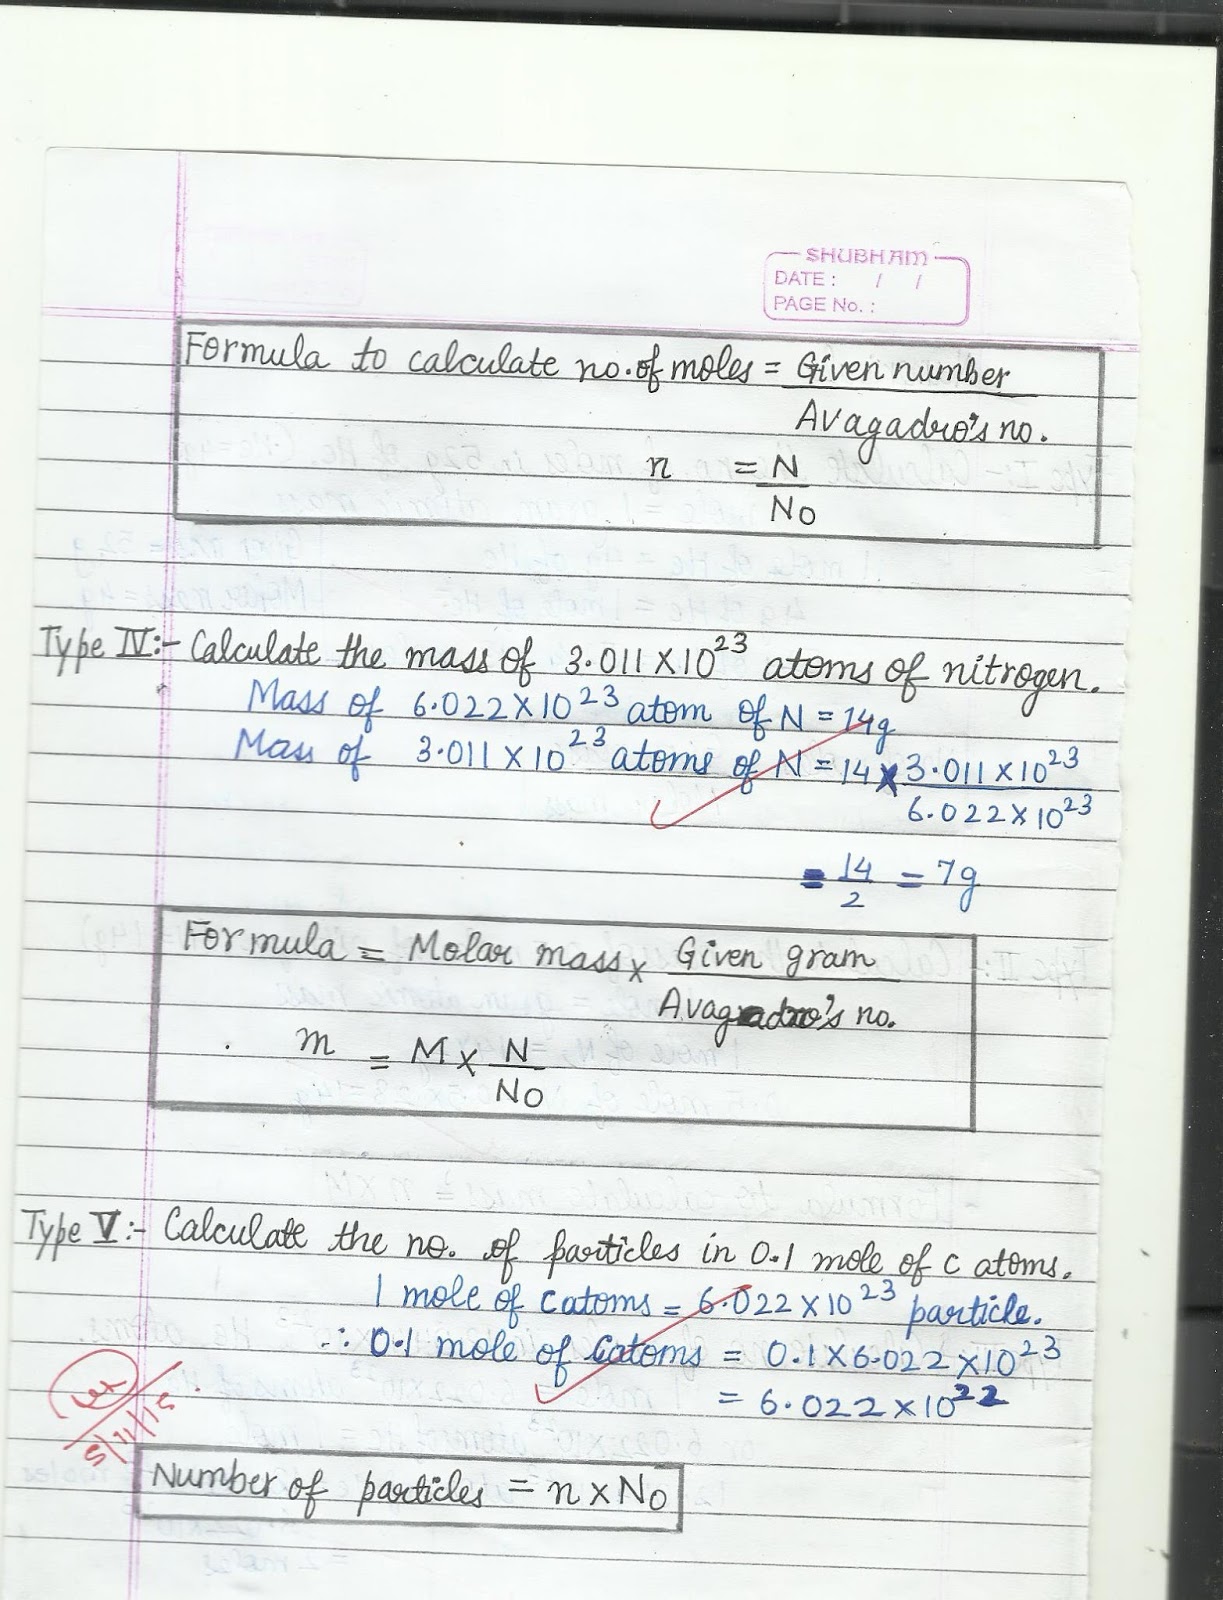 SHUBHAM
DATE : / /
PAGE No. :
Formula to calculate no. of moles = Given number
Avagadro's no.
n = N
No
Type IV:- Calculate the mass of 3.011 X 10²³ atoms of nitrogen.
Mass of 6.022 X 10²³ atom of N = 14g
Mass of 3.011 X 10²³ atoms of N = 14 x 3.011 X 10²³
6.022 X 10²³
= 14 = 7g
2
Formula = Molar mass x Given gram
Avagadro's no.
m = M x N
No
Type V:- Calculate the no. of particles in 0.1 mole of c atoms.
1 mole of c atoms = 6.022 X 10²³ particle.
∴ 0.1 mole of c atoms = 0.1 X 6.022 X 10²³
= 6.022 X 10²²
5/11/15
Number of particles = n x No